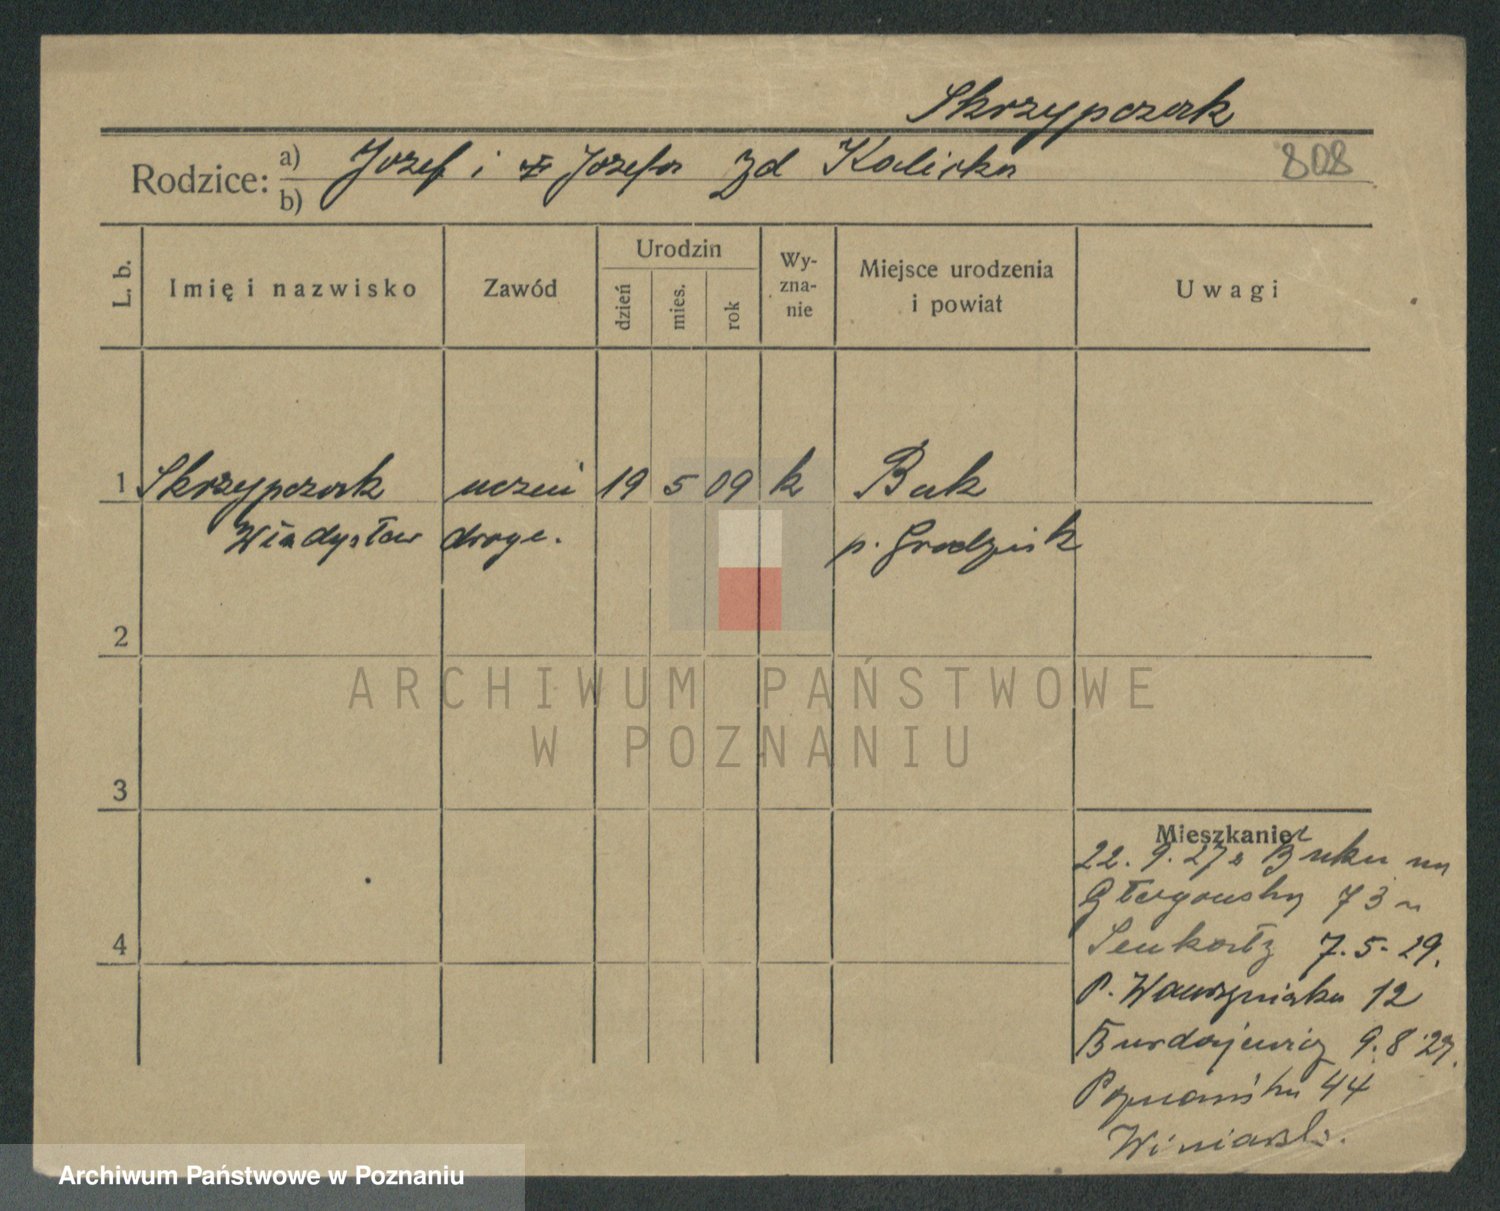 Skrzypczak
Rodzice: a) Józef i Józefa zd Kalirka 808
b)
L. b. Imię i nazwisko Zawód Urodzin dzień mies. rok Wy-zna-nie Miejsce urodzenia i powiat Uwagi
1 Skrzypczak uczeń 19 5 09 k Buk
Władysław droge. p. Grodzisk
2
ARCHIWUM PAŃSTWOWE
W POZNANIU
3
Mieszkanie
22. 9. 27 z Buku na
73
7. 5. 29.
P. Wawrzyniaka 12
Burdajewicz 9. 8 27.
Poznańska 44
Winiarsk.
4
Archiwum Państwowe w Poznaniu